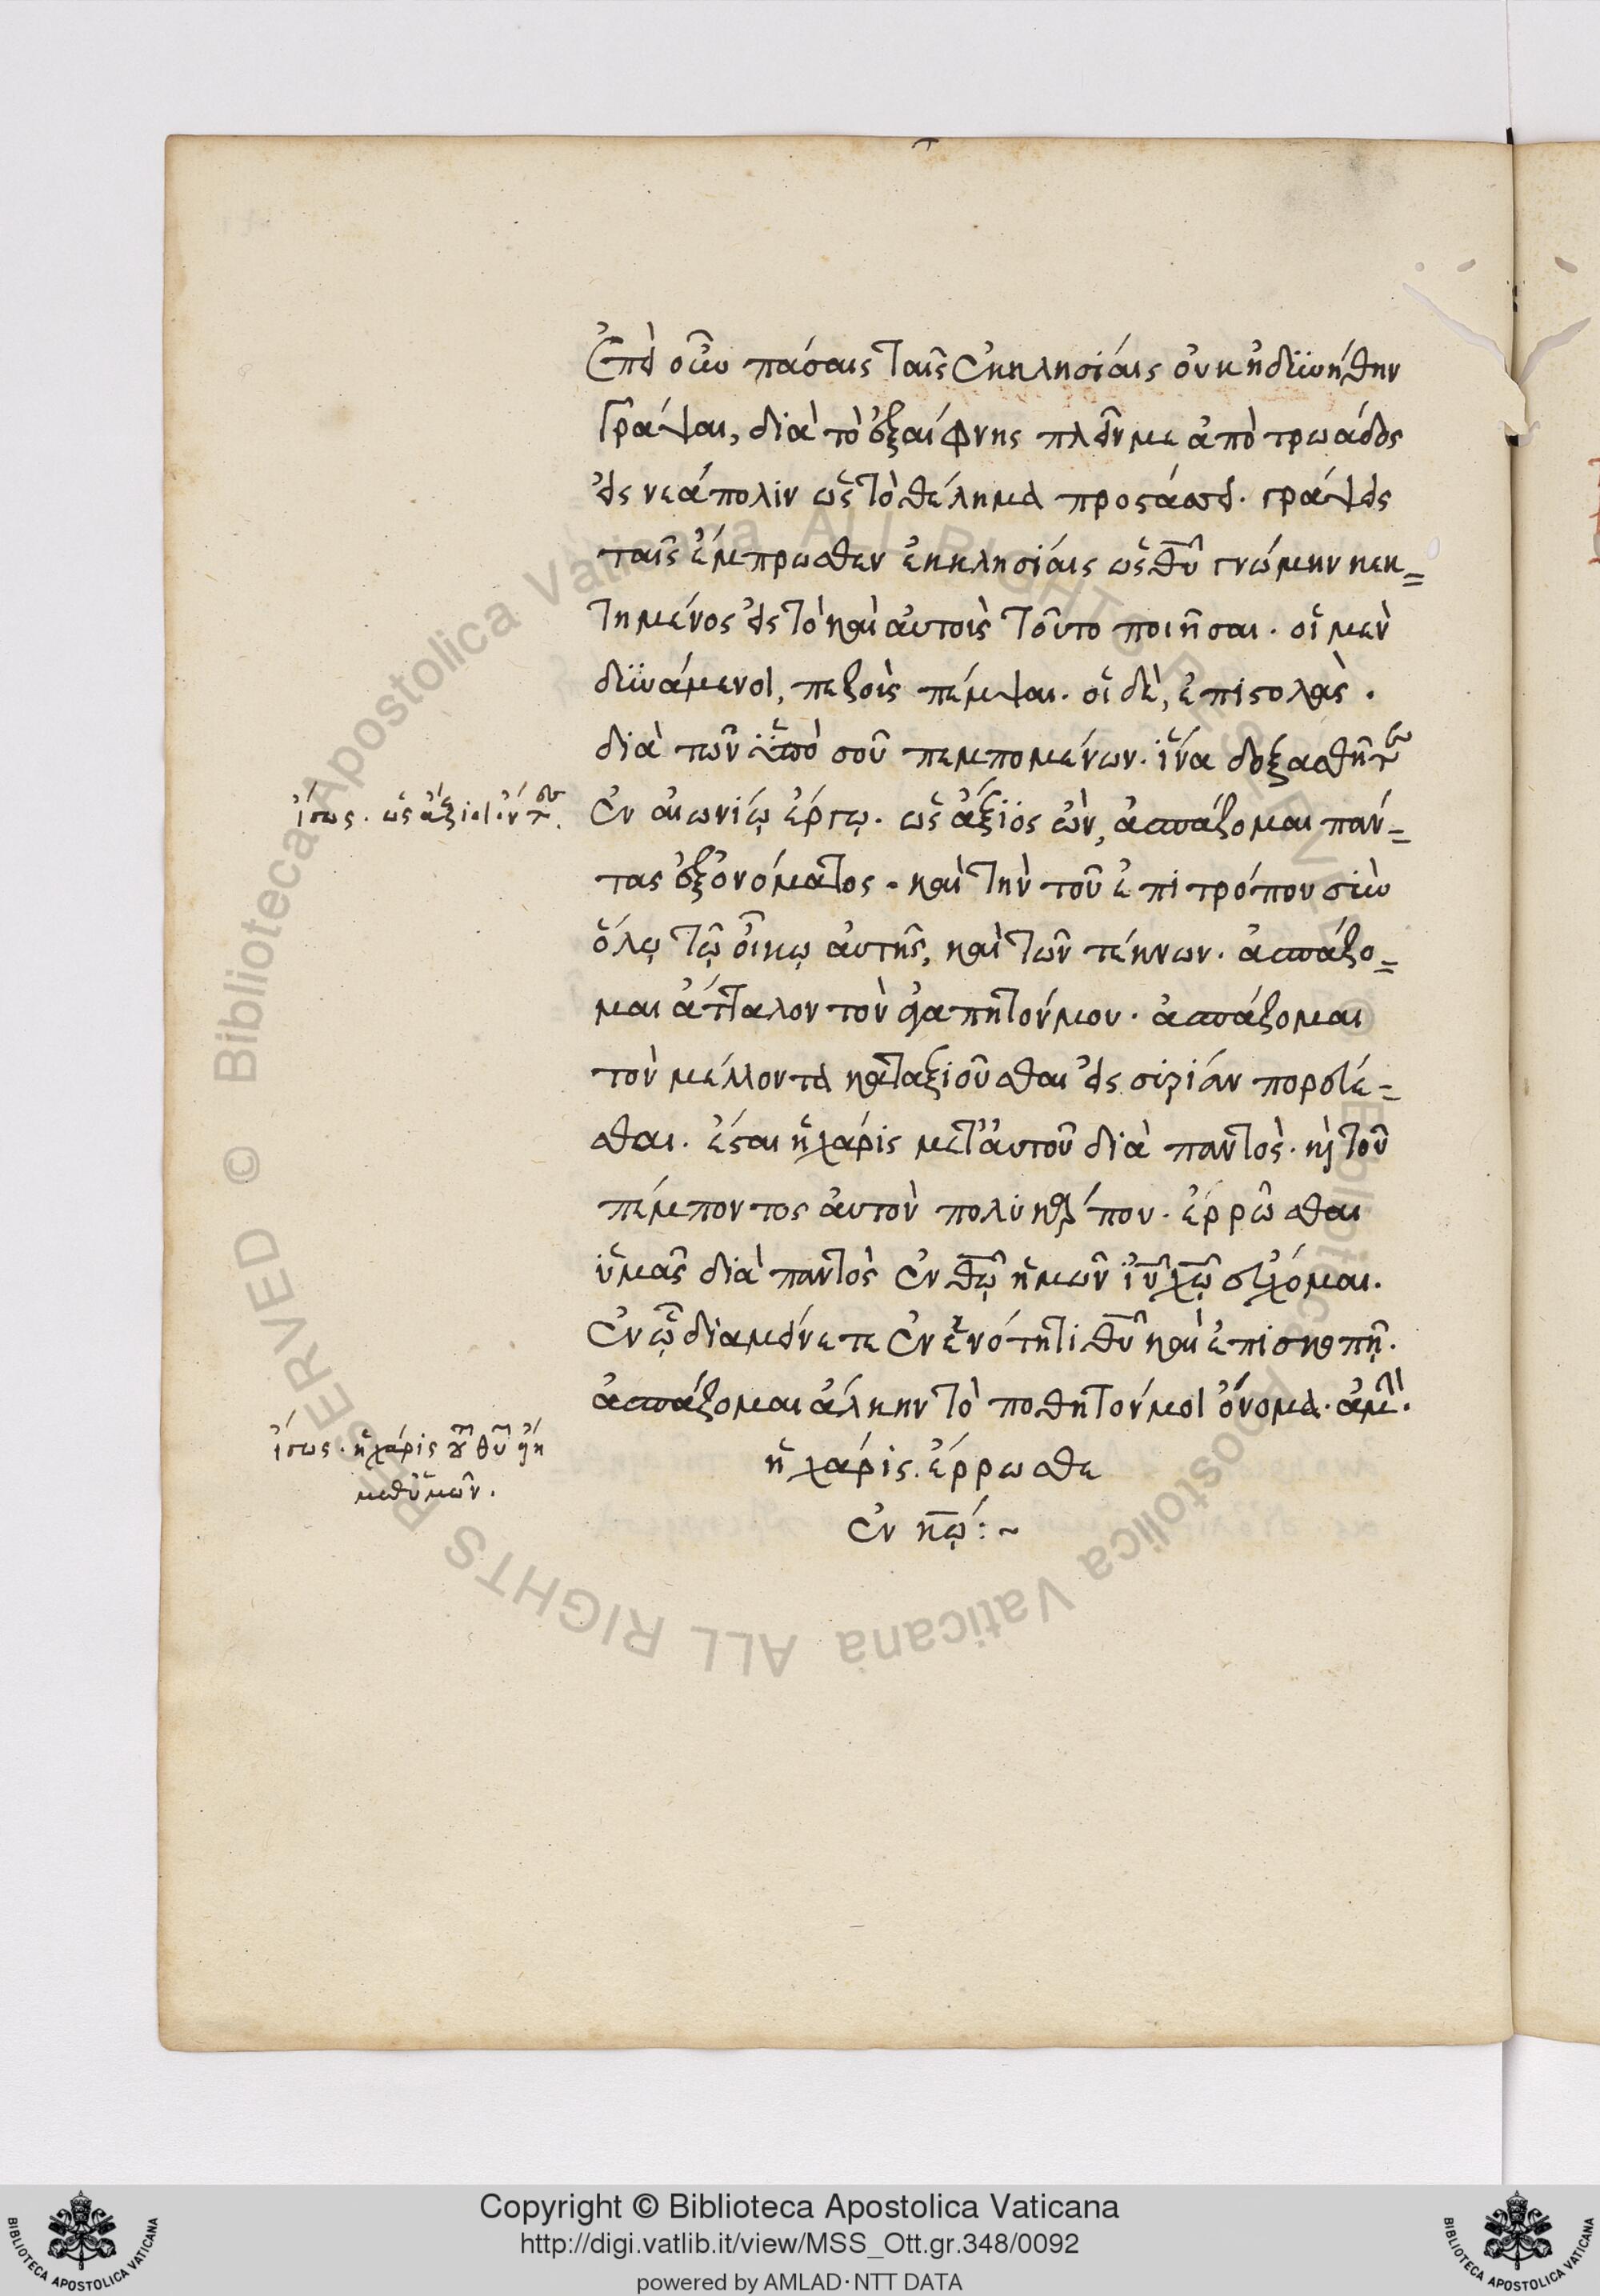 Ἐπεὶ οὖν πάσαις ταῖς ἐκκλησίαις οὐκ ἠδυνήθην
γράψαι, διὰ τὸ ἐξαίφνης πλεῖν με ἀπὸ τρωάδος
εἰς νεάπολιν ὡς τὸ θέλημα προστάσσει. γράψεις
ταῖς ἔμπρωσθεν ἐκκλησίαις ὡς θῦ γνώμην κεκ=
τημένος εἰς τὸ καὶ αὐτοὶς τοῦτο ποιῆσαι. οἱ μὲν
δυνάμενοι, πεζοὶς πέμψαι. οἱ δὲ, ἐπιστολὰς.
διὰ τῶν ὑπό σοῦ πεμπομένων. ἵνα δοξασθῆτε
ἴσως. ὡς ἄξιοι ὄντ.
ἐν αἰωνίῳ ἔργῳ. ὡς ἄξιος ὢν, ἀσπάζομαι πάν=
τας ἐξ ὀνόματος. καὶ τὴν τοῦ ἐπιτρόπου σὺν
ὅλῳ τῷ οἴκῳ αὐτῆς, καὶ τῶν τέκνων. ἀσπάζο=
μαι ἄτταλον τὸν ἀγαπητόν μου. ἀσπάζομαι
τὸν μέλλοντα καταξιοῦσθαι εἰς συρίαν πορεύε=
σθαι. ἔσται ἡ χάρις μετ' αὐτοῦ διὰ παντὸς. κ τοῦ
πέμποντος αὐτὸν πολυκάρπου. ἐρρῶσθαι
ὑμᾶς διὰ παντὸς ἐν θῷ ἡμῶν ἰῦ χῷ εὔχομαι.
ἐν ᾧ διαμείνετε ἐν ἑνότητι θῦ καὶ ἐπισκοπῇ.
ἀσπάζομαι ἄλκην τὸ ποθητόν μοι ὄνομα. ἀμὴ.
ἴσως. ἡ χάρις τοῦ θῦ εἴη
μεθ' ὑμῶν.
ἡ χάρις. ἔρρωσθε
ἐν κῷ:~
Copyright © Biblioteca Apostolica Vaticana
http://digi.vatlib.it/view/MSS_Ott.gr.348/0092
powered by AMLAD·NTT DATA
BIBLIOTECA APOSTOLICA VATICANA
BIBLIOTECA APOSTOLICA VATICANA
© Biblioteca Apostolica Vaticana ALL RIGHTS RESERVED
© Biblioteca Apostolica Vaticana ALL RIGHTS RESERVED